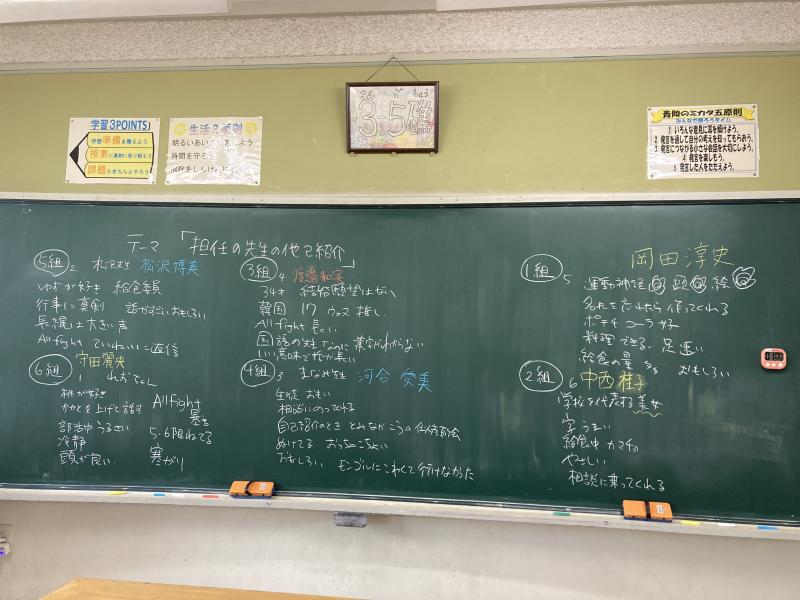 学習3POINTS
学習準備を整えよう
授業に真剣に取り組もう
課題をきちんとやろう
生活3原則
明るいあいさつをしよう
時間を守ろう
けん ご しょう
3-5礁
青陵のミカタ五原則
みんなで語ろうタイム
1 いろんな意見に耳を傾けよう。
2 発言を通して自分の考えを知ってもらおう。
3 発言につながる小さな会話を大切にしよう。
4 発言を楽しもう。
5 発言した人をたたえよう。
テーマ 「担任の先生の他己紹介」
5組 2 松沢先生 松沢博美
ゆずが好き 給食
行事に真剣 話がすごいおもしろい
長縄は大きい声
All fight ていねいに返信
6組 守田麗央
1 れおちゃん
桃が好き
かかとを上げて話す
部活中うるさい
冷静
頭が良い
All fight
5.6限ねてる
寒がり
3組 4 渡邉和実
34才 結婚願望はない
韓国 17 推し
All fight 長い
国語の先生なのに漢字がわからない
いい意味で話が長い
4組 3 まなみ先生 河合愛美
生徒 おもい
相談にのってくれる
ぬけてる おっちょこちょい
おもしろい モンゴルにこわくて行けなかった
1組 5 岡田淳史
運動神経 顔 絵
名札を忘れたら作ってくれる
ポテチ コーラ 好
料理できる 足速い
給食の量 おもしろい
2組 6 中西桂子
学校を代表する美女
字うまい
給食中 カマチョ
やさしい
相談に乗ってくれる